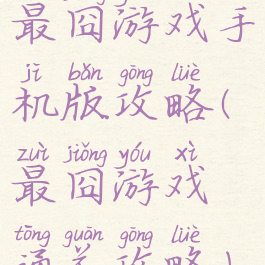 最囧游戏手
jī bǎn gōng lüè
机版攻略(
zuì jiǒng yóu xì
最囧游戏
tōng guān gōng lüè
通关攻略)